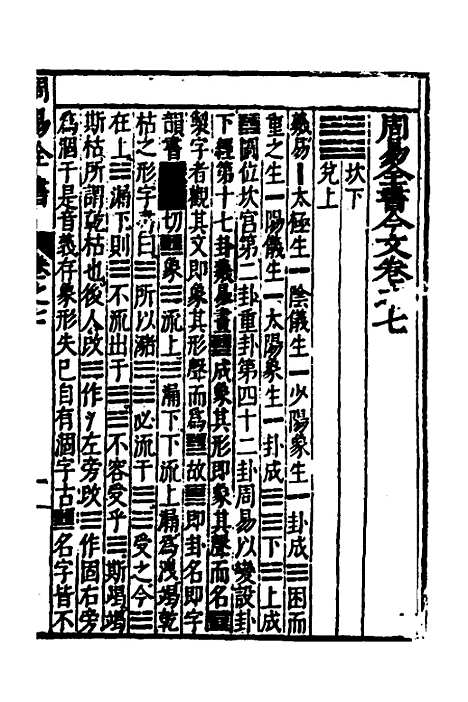 周易全書今文卷之七
坎下
兌上
羲易丨太極生一陰儀生一少陽象生一卦成☵因而
重之生一陽儀生一太陽象生一卦成☱☵下☱上成
圓位坎宮第二卦重卦第四十二卦周易以變設卦
下經第十七卦羲皇畫成象其形即象其聲而名
製字者觀其文即象其形聲而爲故即卦名即字
韻書切象☱流上☵漏下下流上漏爲洩竭乾
枯之形字書曰☱所以瀦☵☵必流于☱☱受之今☱
在上☵漏下則☵不流出于☱☱不容受乎☵斯竭竭
斯枯所謂乾枯也後人改☵作氵左旁改☱作固右旁
爲涸于是音義存象形失已自有涸字古名字皆不
周易全書
卷之七